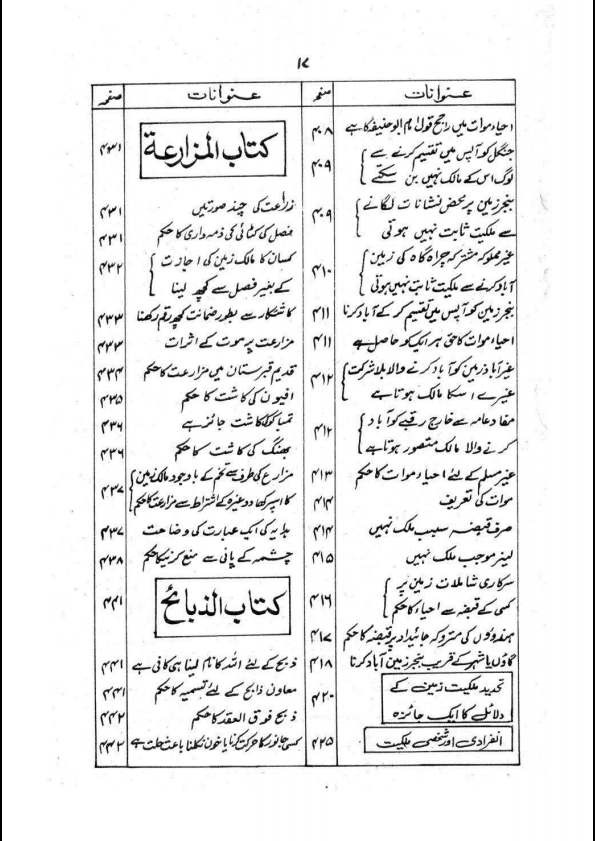 ۱۷
عنوانات صفحہ
احیاء موات میں راجح قول امام ابوحنیفہ کا ہے ۴۰۸
جنگل کو آپس میں تقسیم کرنے سے
لوگ اس کے مالک نہیں بن سکتے ۴۰۹
بنجر زمین پر محض نشانات لگانے
سے ملکیت ثابت نہیں ہوتی ۴۰۹
غیر مملوکہ مشترکہ چراگاہ کی زمین
آباد کرنے سے ملکیت ثابت نہیں ہوتی ۴۱۰
بنجر زمین کو آپس میں تقسیم کر کے آباد کرنا ۴۱۱
احیاء موات کا حق ہر ایک کو حاصل ہے ۴۱۱
غیر آباد زمین کو آباد کرنے والا بلا شرکت
غیرے اس کا مالک ہوتا ہے ۴۱۲
مفاد عامہ سے خارج رقبے کو آباد
کرنے والا مالک متصور ہوتا ہے ۴۱۲
غیر مسلم کے لئے احیاء موات کا حکم ۴۱۳
موات کی تعریف ۴۱۴
صرف قبضہ سبب ملک نہیں ۴۱۴
لیز موجب ملک نہیں ۴۱۵
سرکاری شاملات زمین پر
کسی کے قبضہ سے احیاء کا حکم ۴۱۶
ہندوؤں کی متروکہ جائیداد پر قبضہ کا حکم ۴۱۷
گاؤں یا شہر کے قریب بنجر زمین آباد کرنا ۴۱۸
تحدید ملکیت زمین کے
دلائل کا ایک جائزہ ۴۲۰
انفرادی اور شخصی ملکیت ۴۲۵
عنوانات صفحہ
کتاب المزارعة ۴۳۱
زراعت کی چند صورتیں ۴۳۱
فصل کی کٹائی کی ذمہ داری کا حکم ۴۳۱
کسان کا مالک زمین کی اجازت
کے بغیر فصل سے کچھ لینا ۴۳۲
کاشتکار سے بطور ضمانت کچھ رقم رکھنا ۴۳۳
مزارعت پر موت کے اثرات ۴۳۳
قدیم قبرستان میں مزارعت کا حکم ۴۳۴
افیون کی کاشت کا حکم ۴۳۵
تمباکو کا کاشت جائز ہے ۴۳۶
بھنگ کی کاشت کا حکم ۴۳۶
مزارع کی طرف سے تخم کے باوجود مالک زمین
کا اسپر کھاد وغیرہ کے اشتراط سے مزارعت کا حکم ۴۳۷
ہدایہ کی ایک عبارت کی وضاحت ۴۳۷
چشمہ کے پانی سے منع کرنیکا حکم ۴۳۸
کتاب الذبائح ۴۴۱
ذبح کے لئے اللہ کا نام لینا ہی کافی ہے ۴۴۱
معاون ذابح کے لئے تسمیہ کا حکم ۴۴۱
ذبح فوق العقد کا حکم ۴۴۲
کسی جانور کا حرکت کرنا یا خون نکلنا باعث حلت ہے ۴۴۲